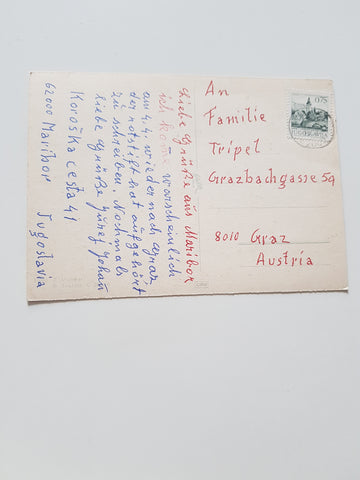 Liebe Grüße aus Maribor
ich kome warscheinlich
am 4.4. wieder nach Graz,
der rotstift hat aufgehört
zu schreiben. Nochmals
liebe Grüße
Koroška cesta 41
62000 Maribor Jugoslavia
An
Familie
Tripel
Grazbachgasse 59
8010 Graz
Austria
0.75
JUGOSLAVIJA